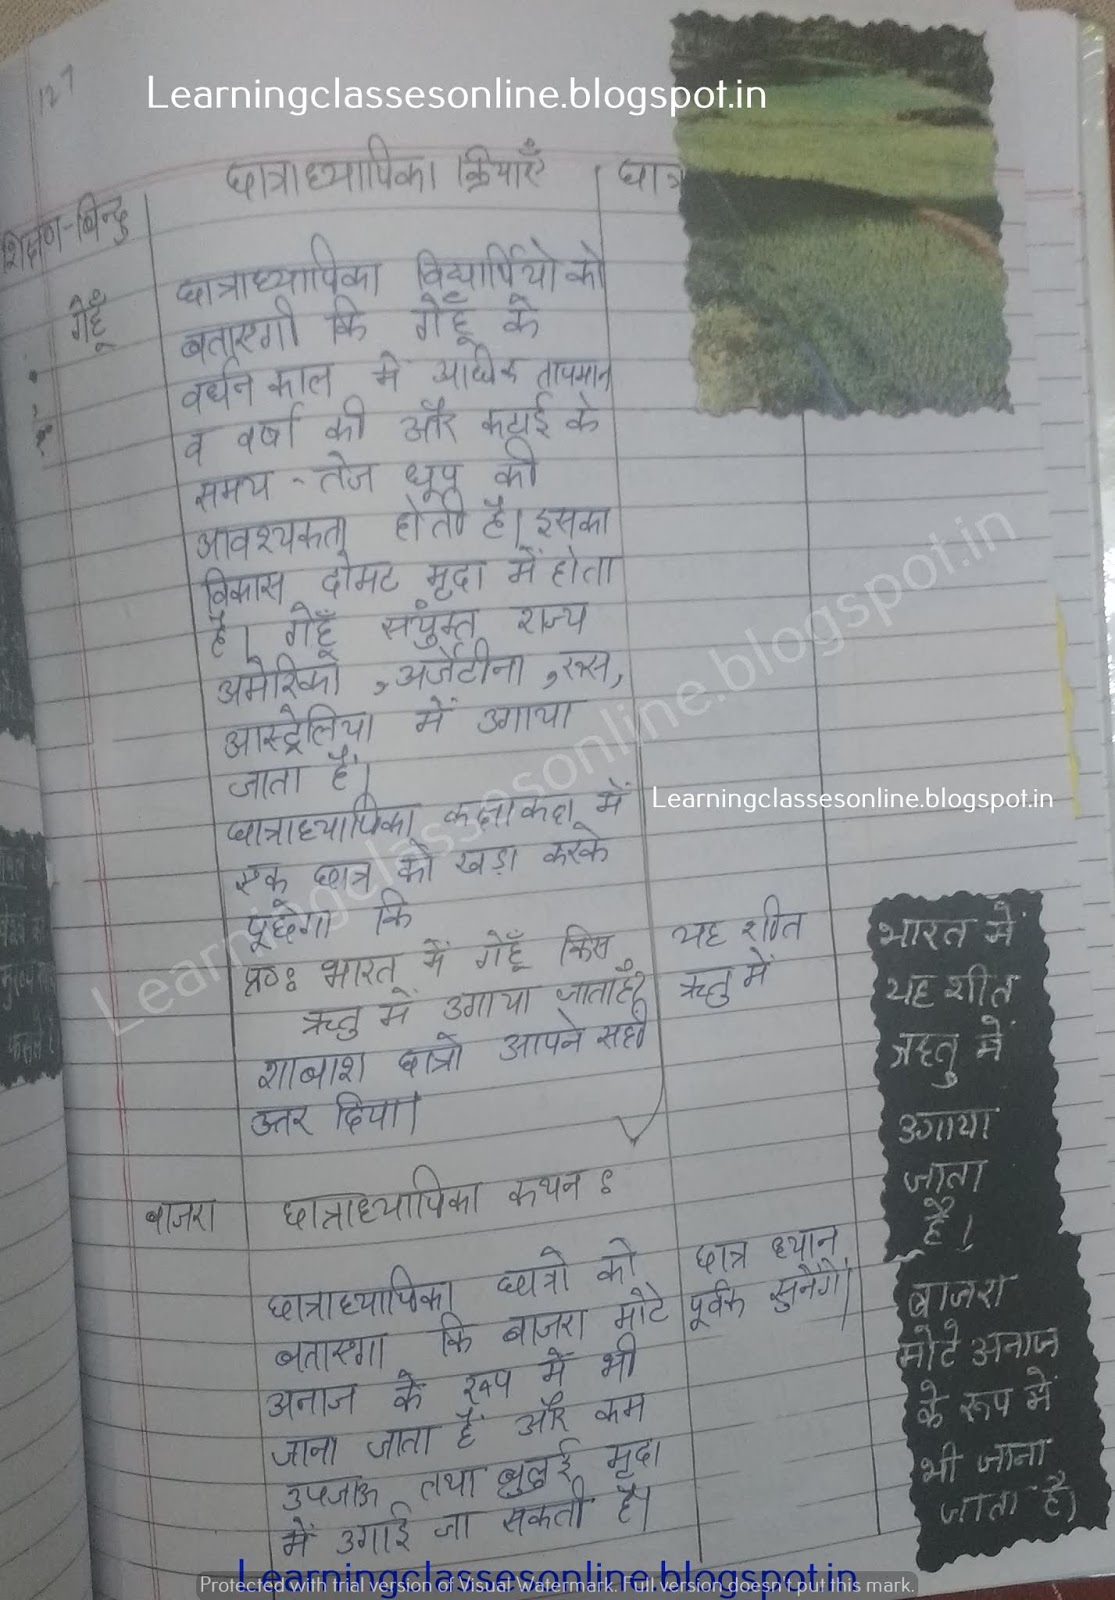 127
Learningclassesonline.blogspot.in
शिक्षण-बिन्दु
छात्राध्यापिका क्रियाएँ
छात्र
गेहूँ
छात्राध्यापिका विद्यार्थियो को
बताएगी कि गेहूँ के
वर्धन काल में अधिक तापमान
व वर्षा की और कटाई के
समय - तेज धूप की
आवश्यकता होती है। इसका
विकास दोमट मृदा में होता
है। गेहूँ संयुक्त राज्य
अमेरिका, अर्जेंटीना, रूस,
आस्ट्रेलिया में उगाया
जाता है।
छात्राध्यापिका कक्षाकक्ष में
एक छात्र को खड़ा करके
पूछेगा कि
प्र०ः भारत में गेहूँ किस
ऋतु में उगाया जाता है?
शाबाश छात्रो आपने सही
उत्तर दिया।
यह शीत
ऋतु में
Learningclassesonline.blogspot.in
Learningclassesonline.blogspot.in
भारत में
यह शीत
ऋतु में
उगाया
जाता
है।
बाजरा
छात्राध्यापिका कथन :
छात्राध्यापिका छात्रो को
बताएगा कि बाजरा मोटे
अनाज के रूप में भी
जाना जाता है और कम
उपजाऊ तथा बुलुई मृदा
में उगाई जा सकती है।
छात्र ध्यान
पूर्वक सुनेंगे।
बाजरा
मोटे अनाज
के रूप में
भी जाना
जाता है।
Learningclassesonline.blogspot.in
Protected with trial version of Visual Watermark. Full version doesn't put this mark.